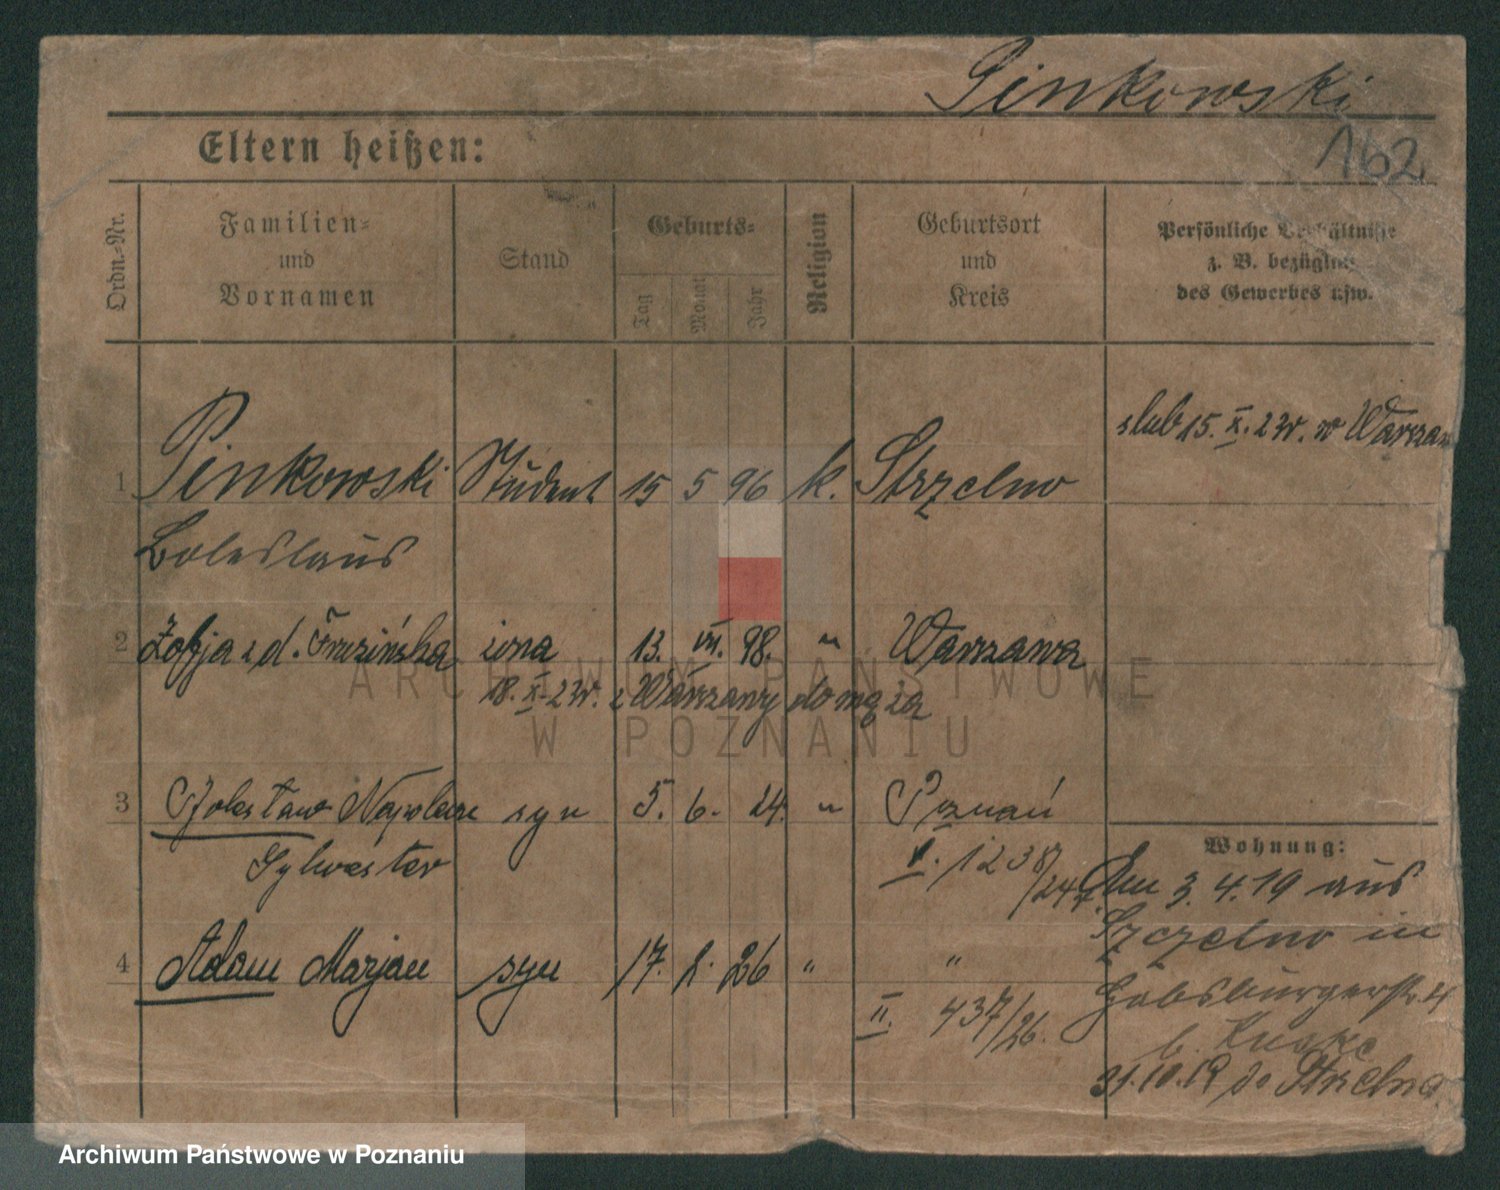 Pinkowski
162
Eltern heißen:
Ordn.-Nr.
Familien-
und
Vornamen
Stand
Geburts-
Tag
Monat
Jahr
Religion
Geburtsort
und
Kreis
Persönliche Verhältnisse
z. B. bezüglich
des Gewerbes usw.
ślub 15. X. 23r. w Warszaw
1 Pinkowski Student 15 5 96 k. Strzelno
Boleslaus
2 Zofja z d. żona 13. VII. 98. " Warszawa
18. X. 23r. z Warszawy do męża
3 Bolesław Napoleon syn 5. 6. 24. " Poznań
Sylwester
V. 1238/24
4 Adam Marjan syn 17. 2. 26 " "
II. 437/26.
Wohnung:
Am 3. 4. 19 aus
Strzelno in
Habsburgerstr. 4
b.
31.10.19 do Strzelna
ARCHIWUM PAŃSTWOWE
W POZNANIU
Archiwum Państwowe w Poznaniu